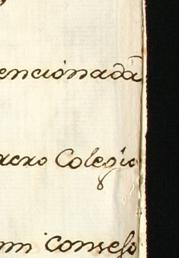 encionada
acro Colegio
um consejo